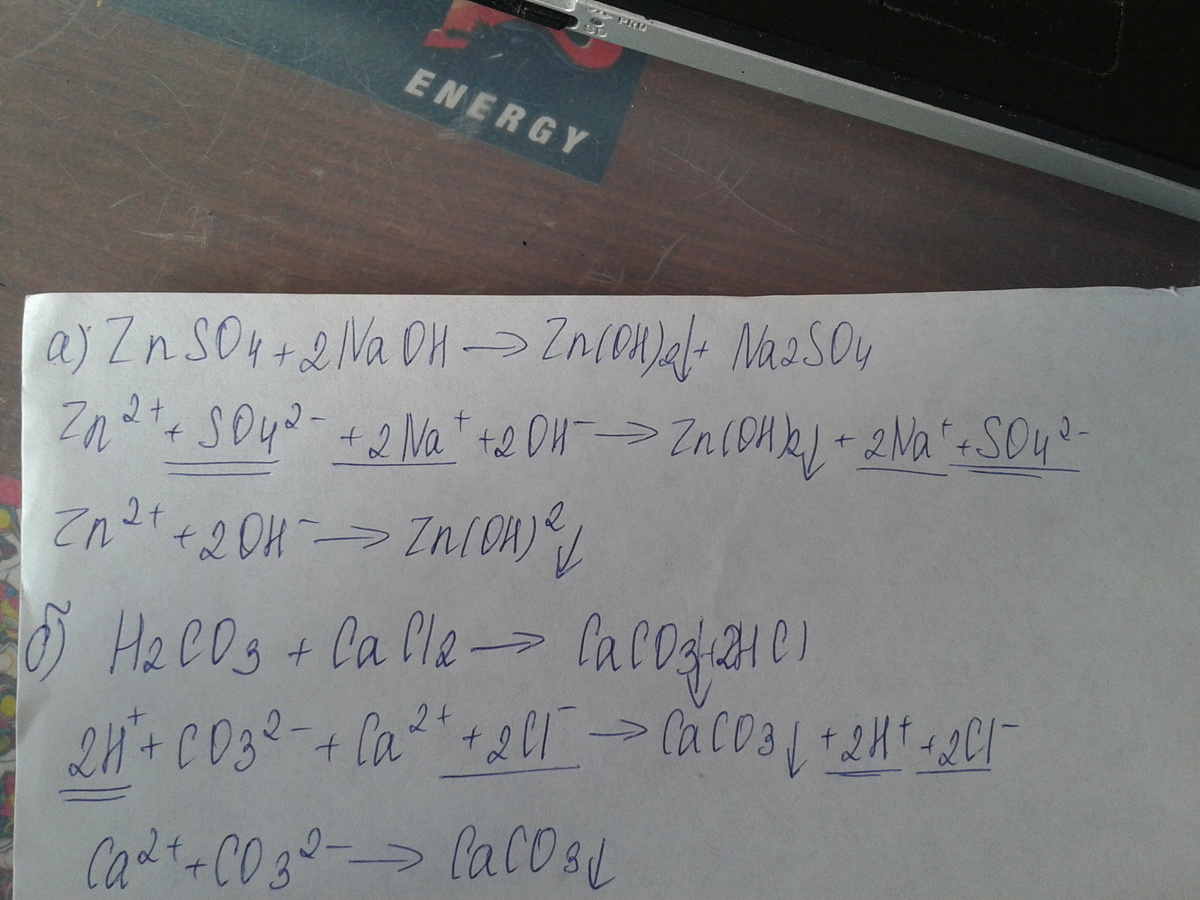 ENERGY
а) ZnSO₄ + 2NaOH → Zn(OH)₂↓ + Na₂SO₄
Zn²⁺ + SO₄²⁻ + 2Na⁺ + 2OH⁻ → Zn(OH)₂↓ + 2Na⁺ + SO₄²⁻
Zn²⁺ + 2OH⁻ → Zn(OH)²↓
б) H₂CO₃ + CaCl₂ → CaCO₃↓ + 2HCl
2H⁺ + CO₃²⁻ + Ca²⁺ + 2Cl⁻ → CaCO₃↓ + 2H⁺ + 2Cl⁻
Ca²⁺ + CO₃²⁻ → CaCO₃↓